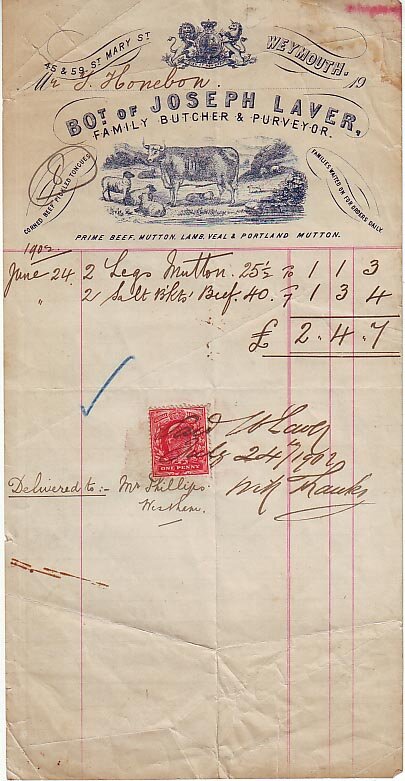 45 & 59, ST MARY ST WEYMOUTH.
Mr S. Honebon. 19
BOT. OF JOSEPH LAVER,
FAMILY BUTCHER & PURVEYOR.
CORNED BEEF PICKLED TONGUES
FAMILIES WAITED ON FOR ORDERS DAILY.
PRIME BEEF, MUTTON, LAMB, VEAL & PORTLAND MUTTON.
1902.
June 24 2 Legs Mutton. 25½ 1 1 3
" 2 Salt Bkts Beef. 40. 1 3 4
£ 2. 4. 7
W Laver
July 24th 1902
With Thanks
ONE PENNY
Delivered to :- Mr Phillips.